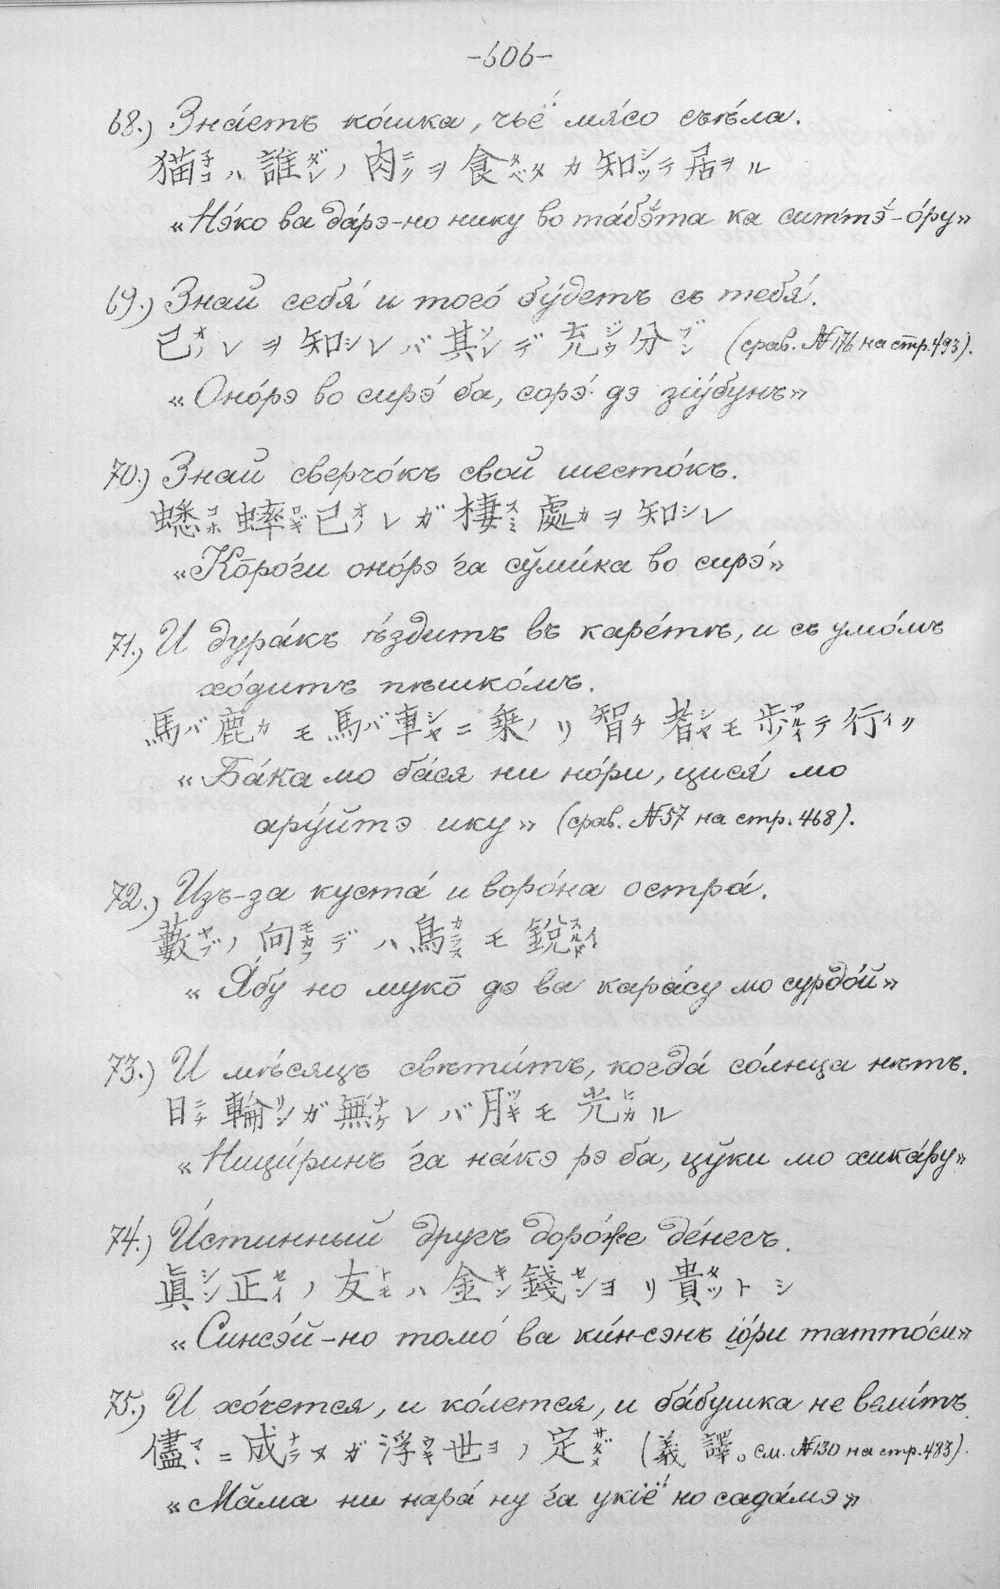 -606-
68.) Зна́етъ ко́шка, чьё мя́со съѣ́ла.
猫ネコハ誰ダレノ肉ニクヲ食タベタカ知シッテ居ヲル
«Нэ́ко ва да́рэ-но нику во та́бэ̆та ка ситтэ́-о́ру»
69.) Знай себя́ и того́ бу́детъ съ тебя́.
己オノレヲ知シレバ其ソレデ充ジウ分ブン (срав. №176 на стр. 493).
«Оно́рэ во сирэ́ ба, сорэ́ дэ зіу́бунъ»
70.) Знай сверчо́къ свой шесто́къ.
蟋コホ蟀ロギ己オノレガ棲スミ處カヲ知シレ
«Ко̄ро́ги оно́рэ га сўми́ка во сирэ́»
71.) И дура́къ ѣ́здитъ въ каре́тѣ, и съ умо́мъ
хо́дитъ пѣшко́мъ.
馬バ鹿カモ馬バ車シヤニ乗ノリ智チ者シヤモ歩アルイテ行イク
«Ба́ка мо ба́ся ни но́ри, цися́ мо
ару́йтэ ику» (срав. №57 на стр. 468).
72.) Изъ-за куста́ и воро́на остра́.
藪ヤブノ向ムカフデハ烏カラスモ鋭スルドイ
«Я́бу но муко̄ дэ ва кара́су мо сурдо́й»
73.) И мѣ́сяцъ свѣти́тъ, когда́ со́лнца нѣтъ.
日ニチ輪リンガ無ナケレバ月ツキモ光ヒカル
«Ници́ринъ га на́кэ рэ ба, цўки мо хика́ру»
74.) И́стинный другъ доро́же де́негъ.
眞シン正セイノ友トモハ金キン錢センヨリ貴タットシ
«Синсэ́й-но томо́ ва ки́н-сэнъ іо́ри татто́си»
75.) И хо́чется, и ко́лется, и ба́бушка не вели́тъ.
儘マヽニ成ナラヌガ浮ウキ世ヨノ定サダメ (義譯。см. №130 на стр. 483).
«Мӑма ни нара́ ну га укіё но сада́мэ»